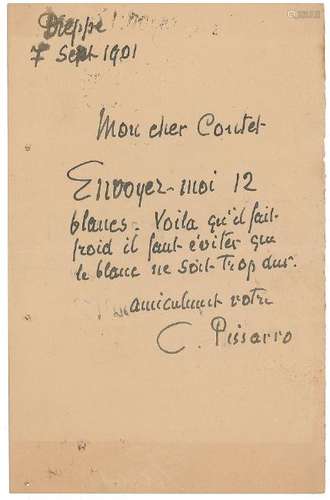 Dieppe
7 Sept 1901
Mon cher Contet
Envoyez-moi 12
blancs. Voila qu'il fait
froid il faut éviter que
le blanc ne soit trop dur.
amicalement votre
C. Pissarro